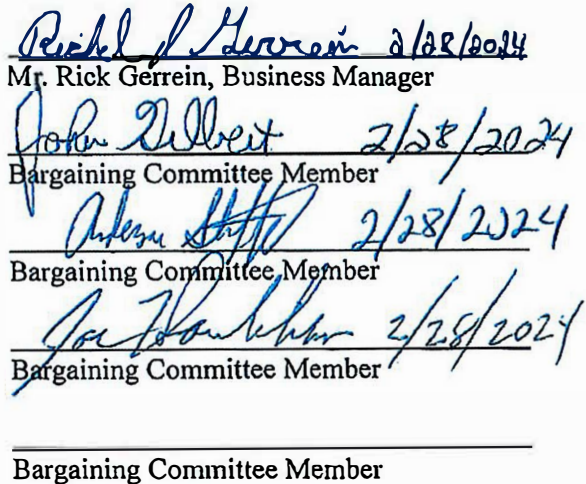 Gerrein 2/28/2024
Mr. Rick Gerrein, Business Manager
John Gilbert 2/28/2024
Bargaining Committee Member
2/28/2024
Bargaining Committee Member
Joe 2/28/2024
Bargaining Committee Member
Bargaining Committee Member